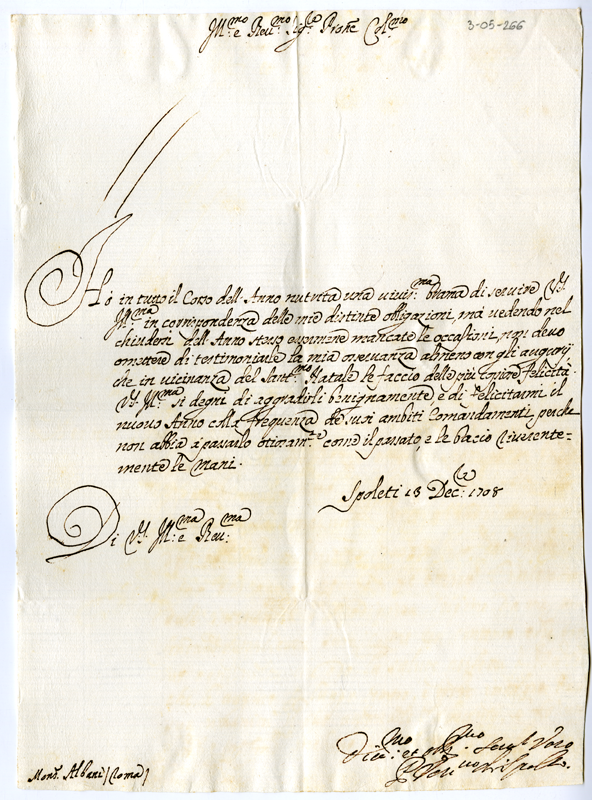 Ill:mo e Reu:mo Sig:r Prone Col:mo
3-05-266
Hò in tutto il Corso dell'Anno nutrita una viuiss:ma brama di seruire V.S.
Ill:ma in corrispondenza delle mie distinte obligazioni, mà vedendo nel
chiudersi dell'Anno stesso essermene mancate le occasioni, non deuo
omettere di testimoniarle la mia osseruanza almeno con gli augurij
che in vicinanza del Sant:mo Natale le faccio delle più Felicità.
V.S. Ill:ma si degni di aggradirli benignamente e di felicitarmi il
nuouo Anno colla frequenza de suoi ambiti Comandamenti, perche
non abbia a passarlo otiosam:te come il passato, e le bacio riuerente-
mente le mani.
Spoleti 13 Dec: 1708
Di V.S. Ill:ma e Reu:ma
Diu:mo et obl:mo Seru:
Mons: Albani (Roma)